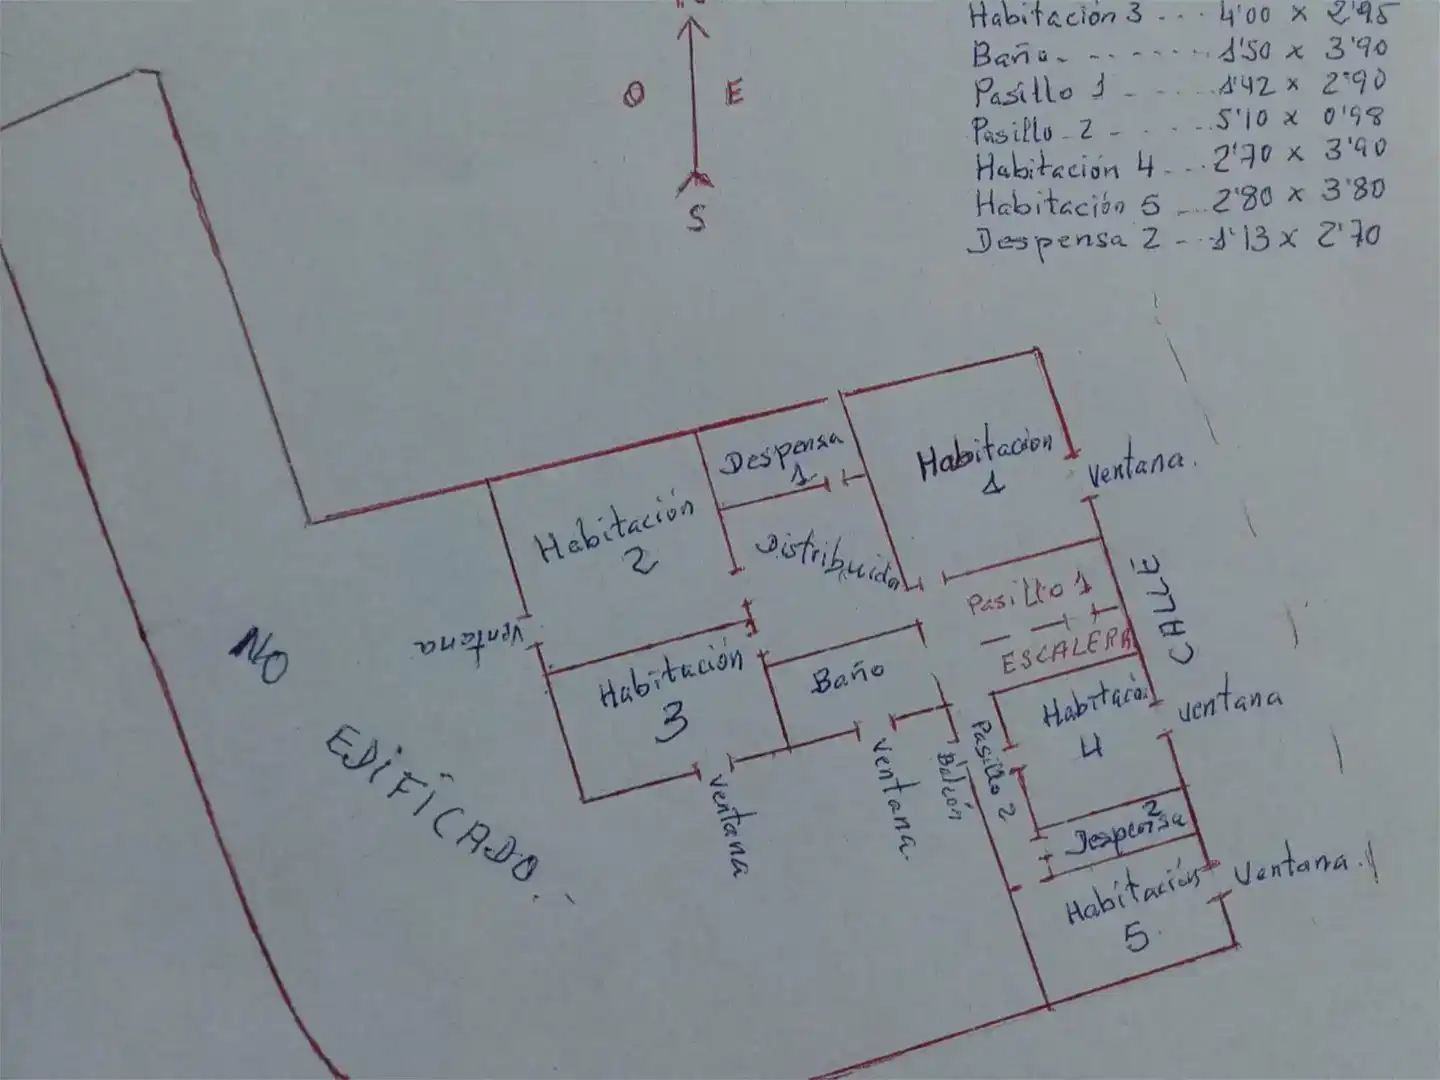 Habitación 3 ... 4'00 x 2'95
Baño. - - - - - - - 1'50 x 3'90
Pasíllo 1 - - - - - 1'42 x 2'90
Pasíllo - 2 - - - - 5'10 x 0'98
Habitación 4 ... 2'70 x 3'90
Habitación 5 ... 2'80 x 3'80
Despensa 2 - - 1'13 x 2'70
O E
S
Despensa
1
Habitación
1
ventana.
Habitación
2
Distribuidor
Pasíllo 1
ESCALERA
CALLE
ventana
NO
EDIFICADO.
Habitación
3
Baño
Habitació
4
ventana
Pasíllo 2
Balcón
ventana
ventana.
Despensa
2
Habitación
5.
ventana.